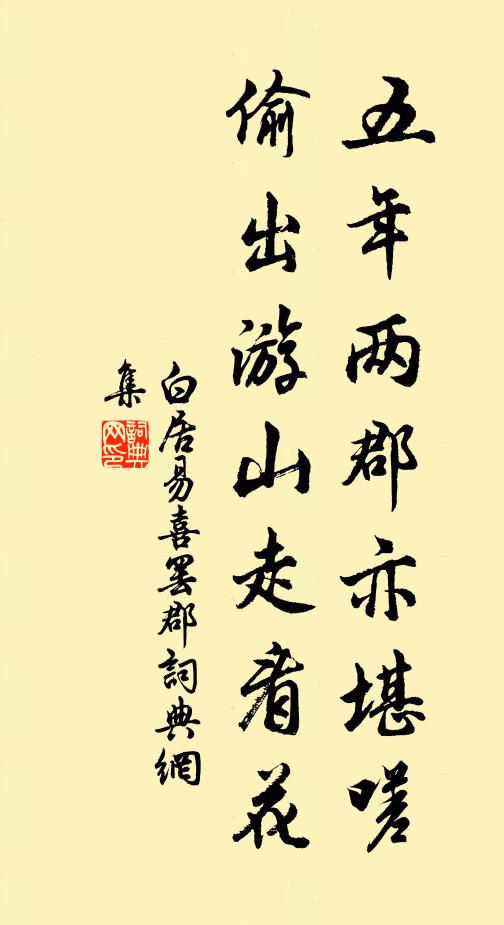 五年两郡亦堪嗟
偷出游山走看花
白居易喜罢郡詞典網
集
詞典网印